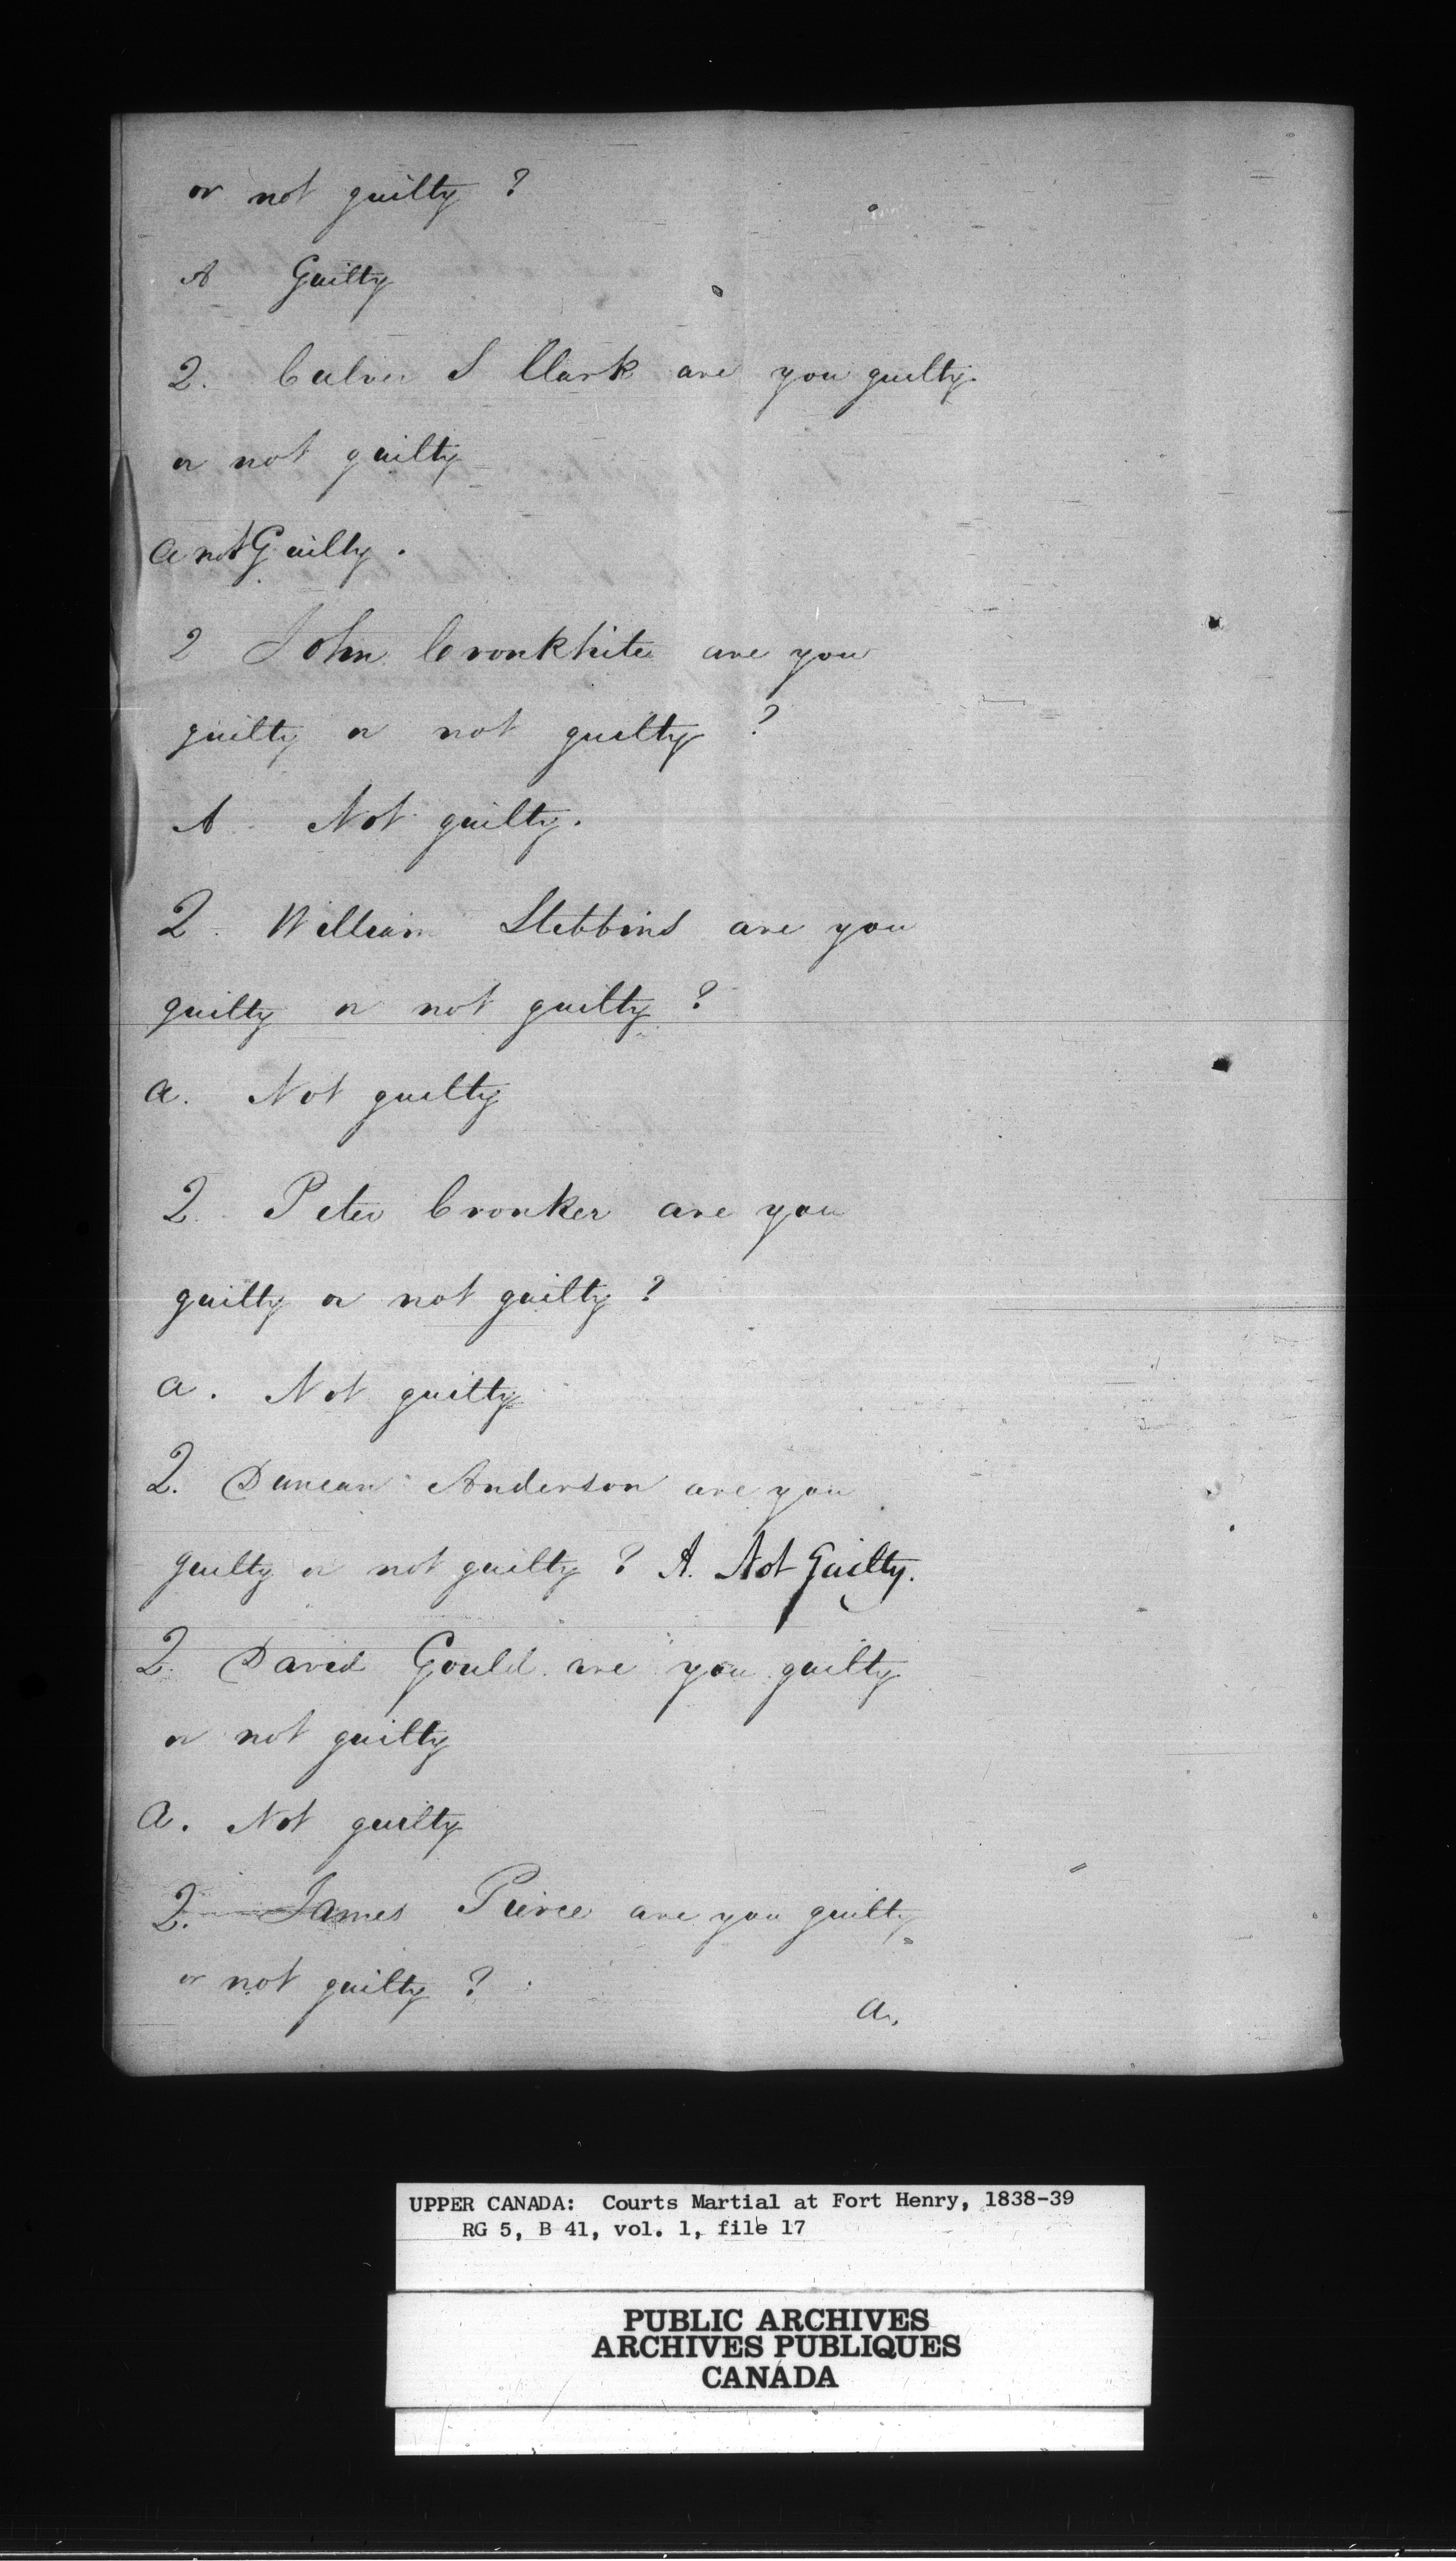 or not guilty ?
A Guilty
Q. Culver S Clark are you guilty.
or not guilty
a not Guilty.
Q John Cronkhite are you
guilty or not guilty ?
A - Not guilty.
Q - William Stebbins are you
guilty or not guilty ?
a. Not guilty
Q. Peter Cronker are you
guilty or not guilty ?
a. Not guilty
Q. Duncan Anderson are you
guilty or not guilty ? A. Not Guilty.
Q. David Gould are you guilty
or not guilty
a. Not guilty
Q. James Pierce are you guilty
or not guilty ?
a.
UPPER CANADA: Courts Martial at Fort Henry, 1838-39
RG 5, B 41, vol. 1, file 17
PUBLIC ARCHIVES
ARCHIVES PUBLIQUES
CANADA